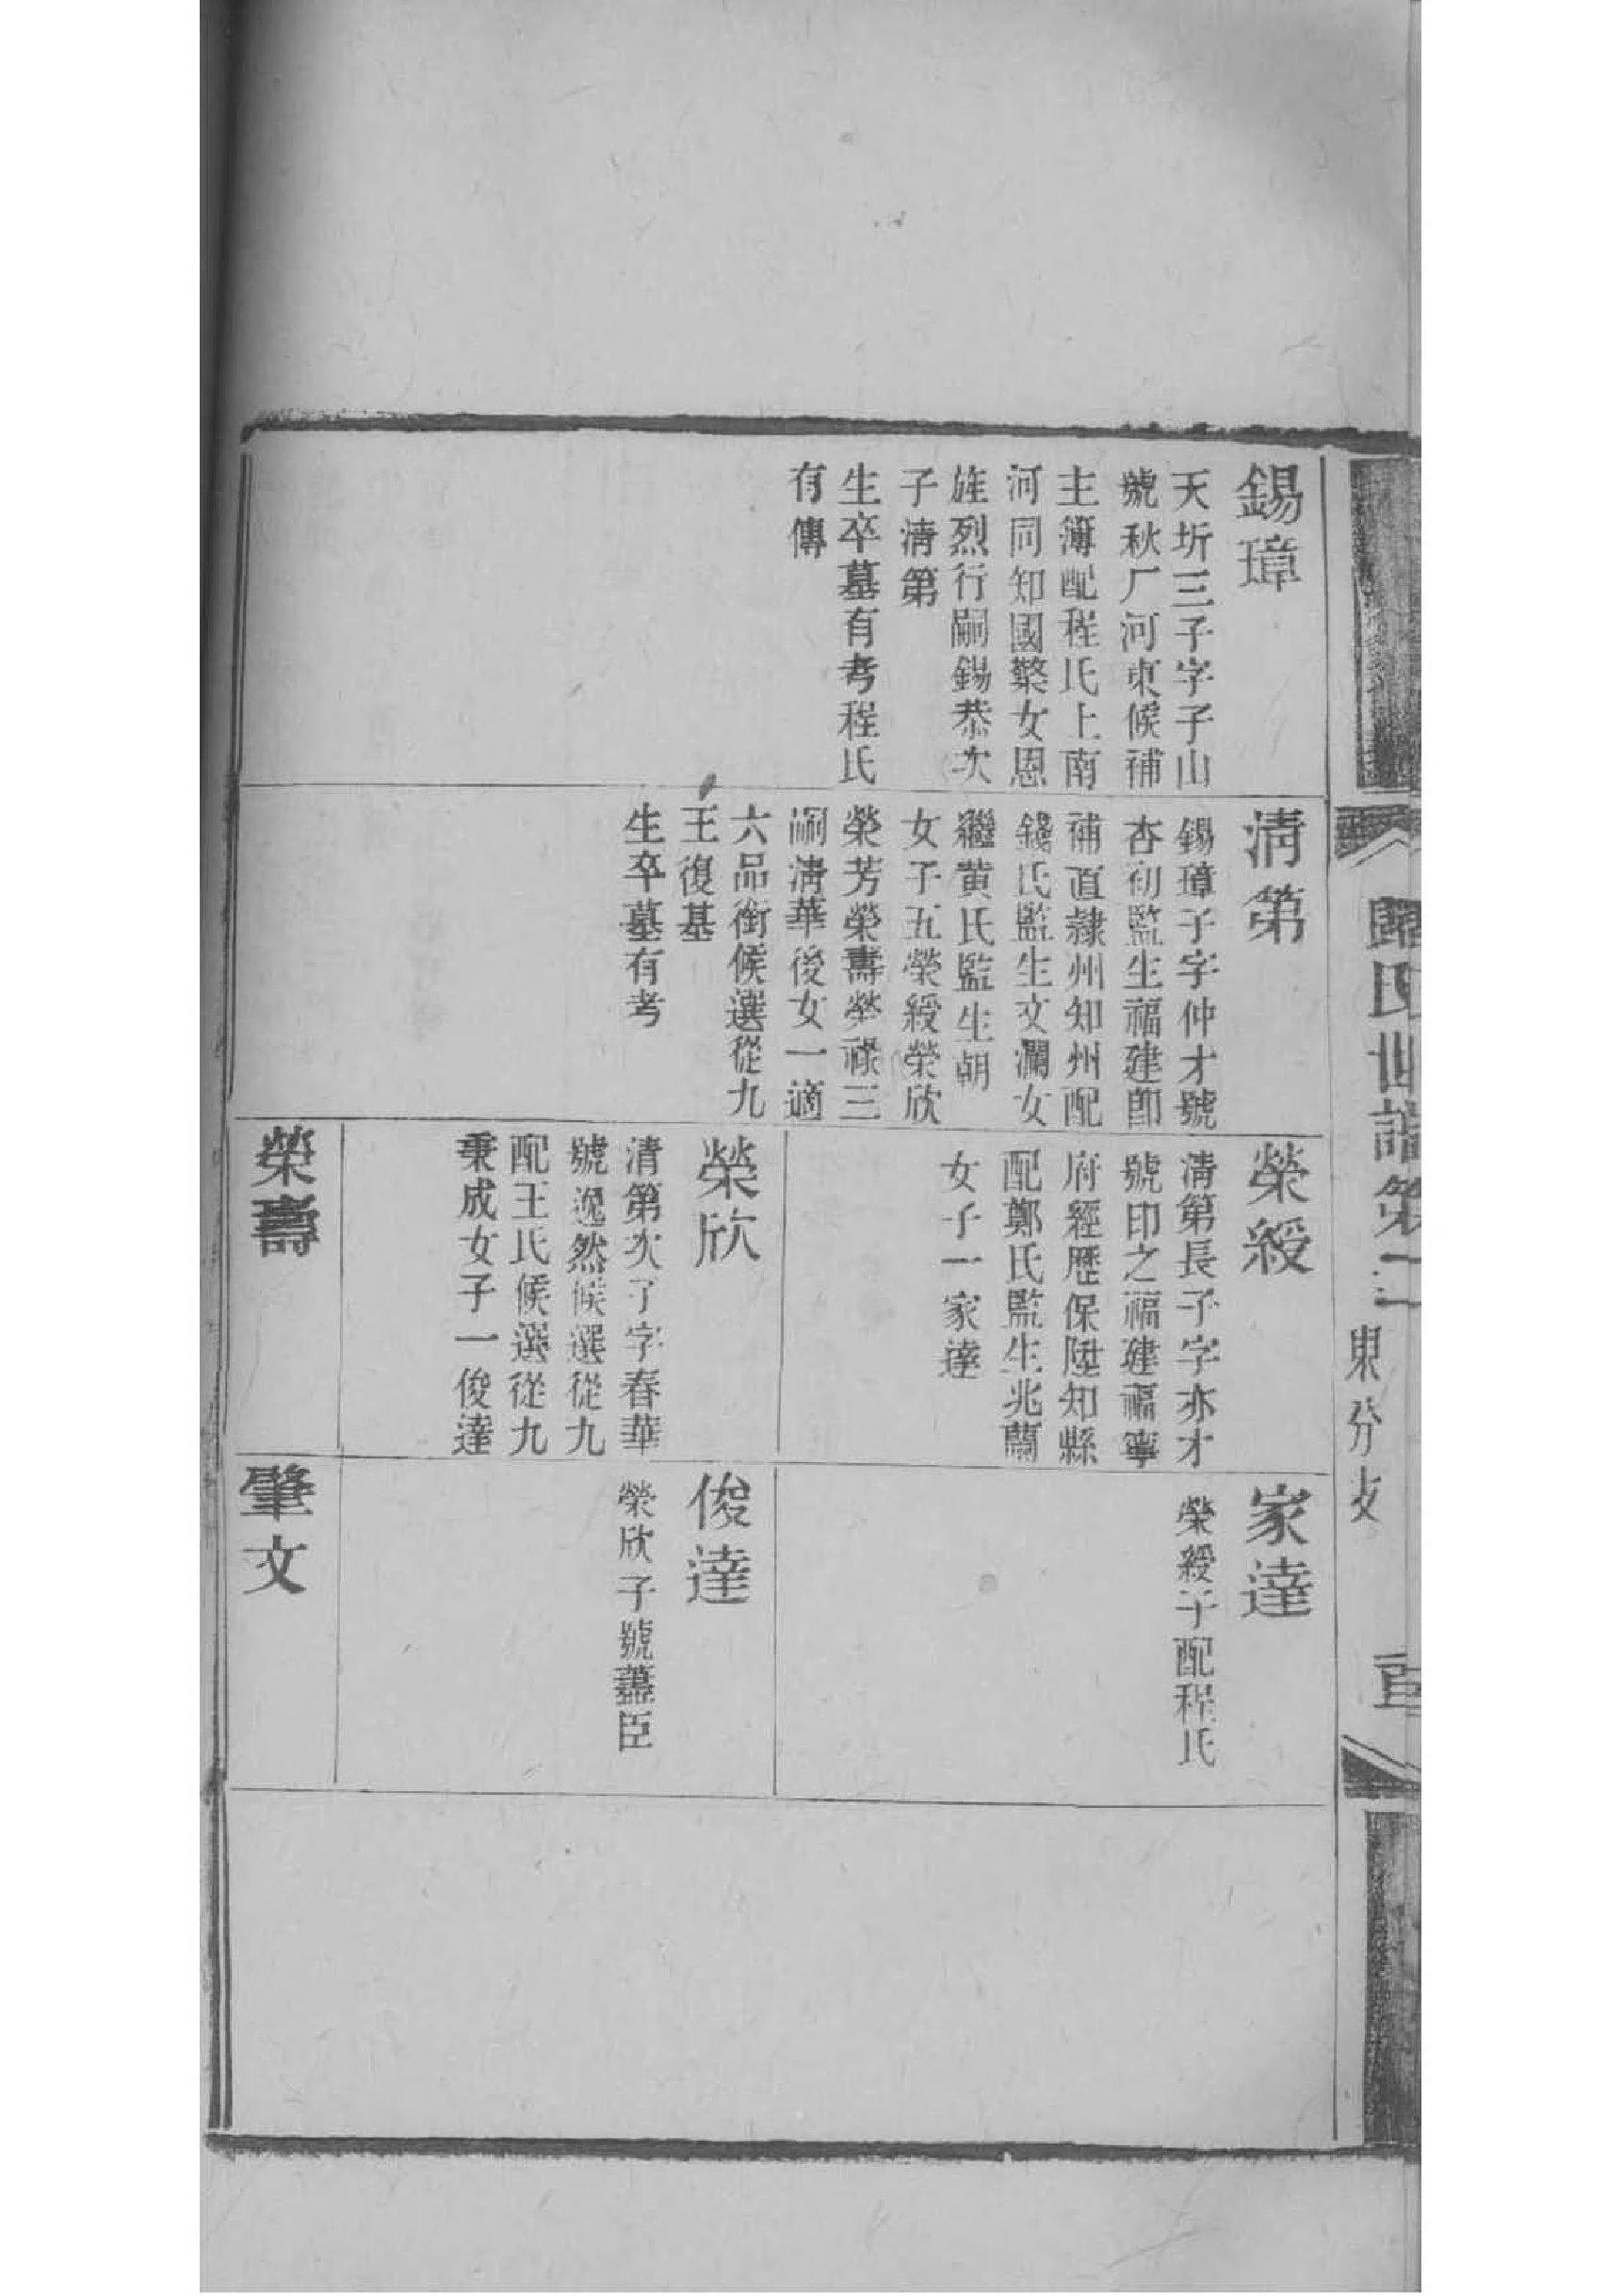 歸氏世譜第二
東分支
錫璋
天圻三子字子山
號秋厂河東候補
主簿配程氏上南
河同知國棨女恩
旌烈行嗣錫恭次
子清第
生卒墓有考程氏
有傳
清第
錫璋子字仲才號
杏初監生福建卽
補直隷州知州配
錢氏監生文瀾女
繼黄氏監生朝
女子五榮綬榮欣
榮芳榮壽榮祿三
嗣清華後女一適
六品銜候選從九
王復基
生卒墓有考
榮綬
清第長子字亦才
號印之福建福寧
府經歷保陞知縣
配鄭氏監生兆蘭
女子一家達
榮欣
清第次子字春華
號逸然候選從九
配王氏候選從九
秉成女子一俊達
榮壽
家達
榮綬子配程氏
俊達
榮欣子號藎臣
肇文